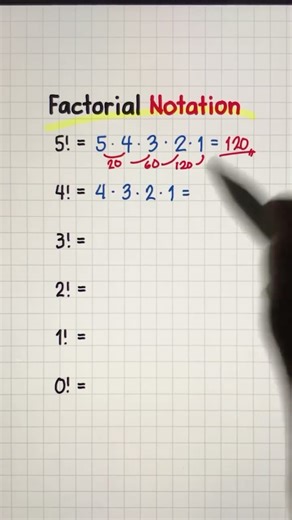 Factorial Notation
5! = 5 · 4 · 3 · 2 · 1 = 120
20 60 120
4! = 4 · 3 · 2 · 1 =
3! =
2! =
1! =
0! =